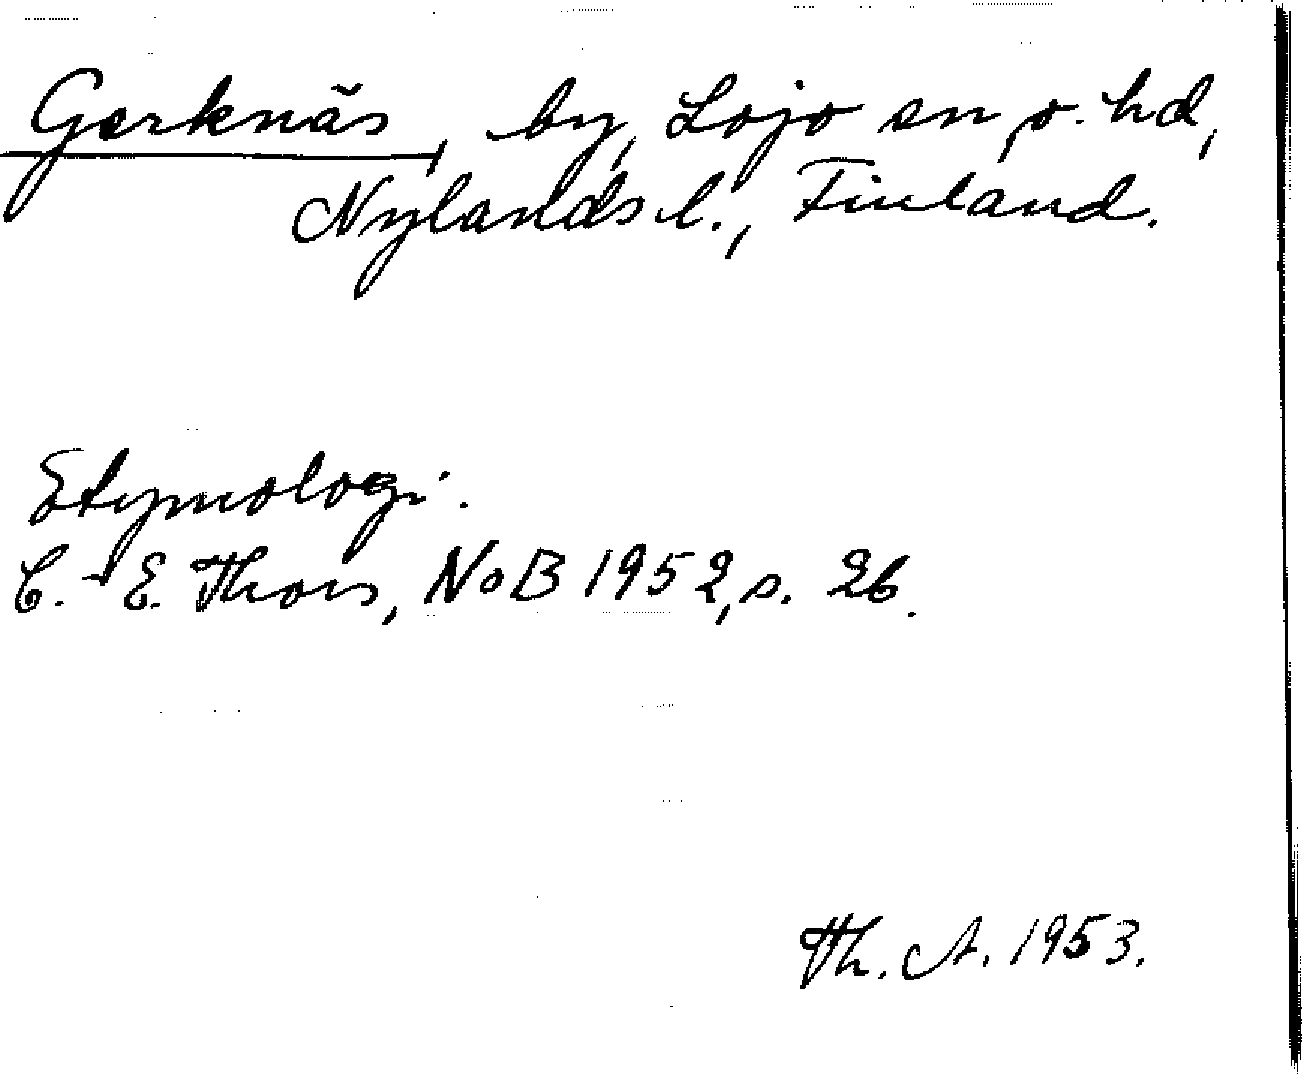 Gerknäs, by, Lojo sn, o. hd,
Nylands l., Finland.
Etymologi.
C.-E. Thors, NoB 1952, s. 26.
Th. A. 1953.